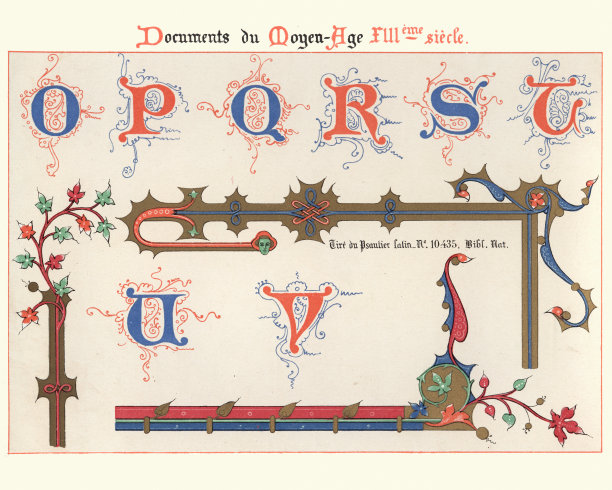 Documents du Moyen-Age XIII ème siècle.
O P Q R S T
Tiré du Psautier latin_Nº. 10435, Bibl. Nat.
U V